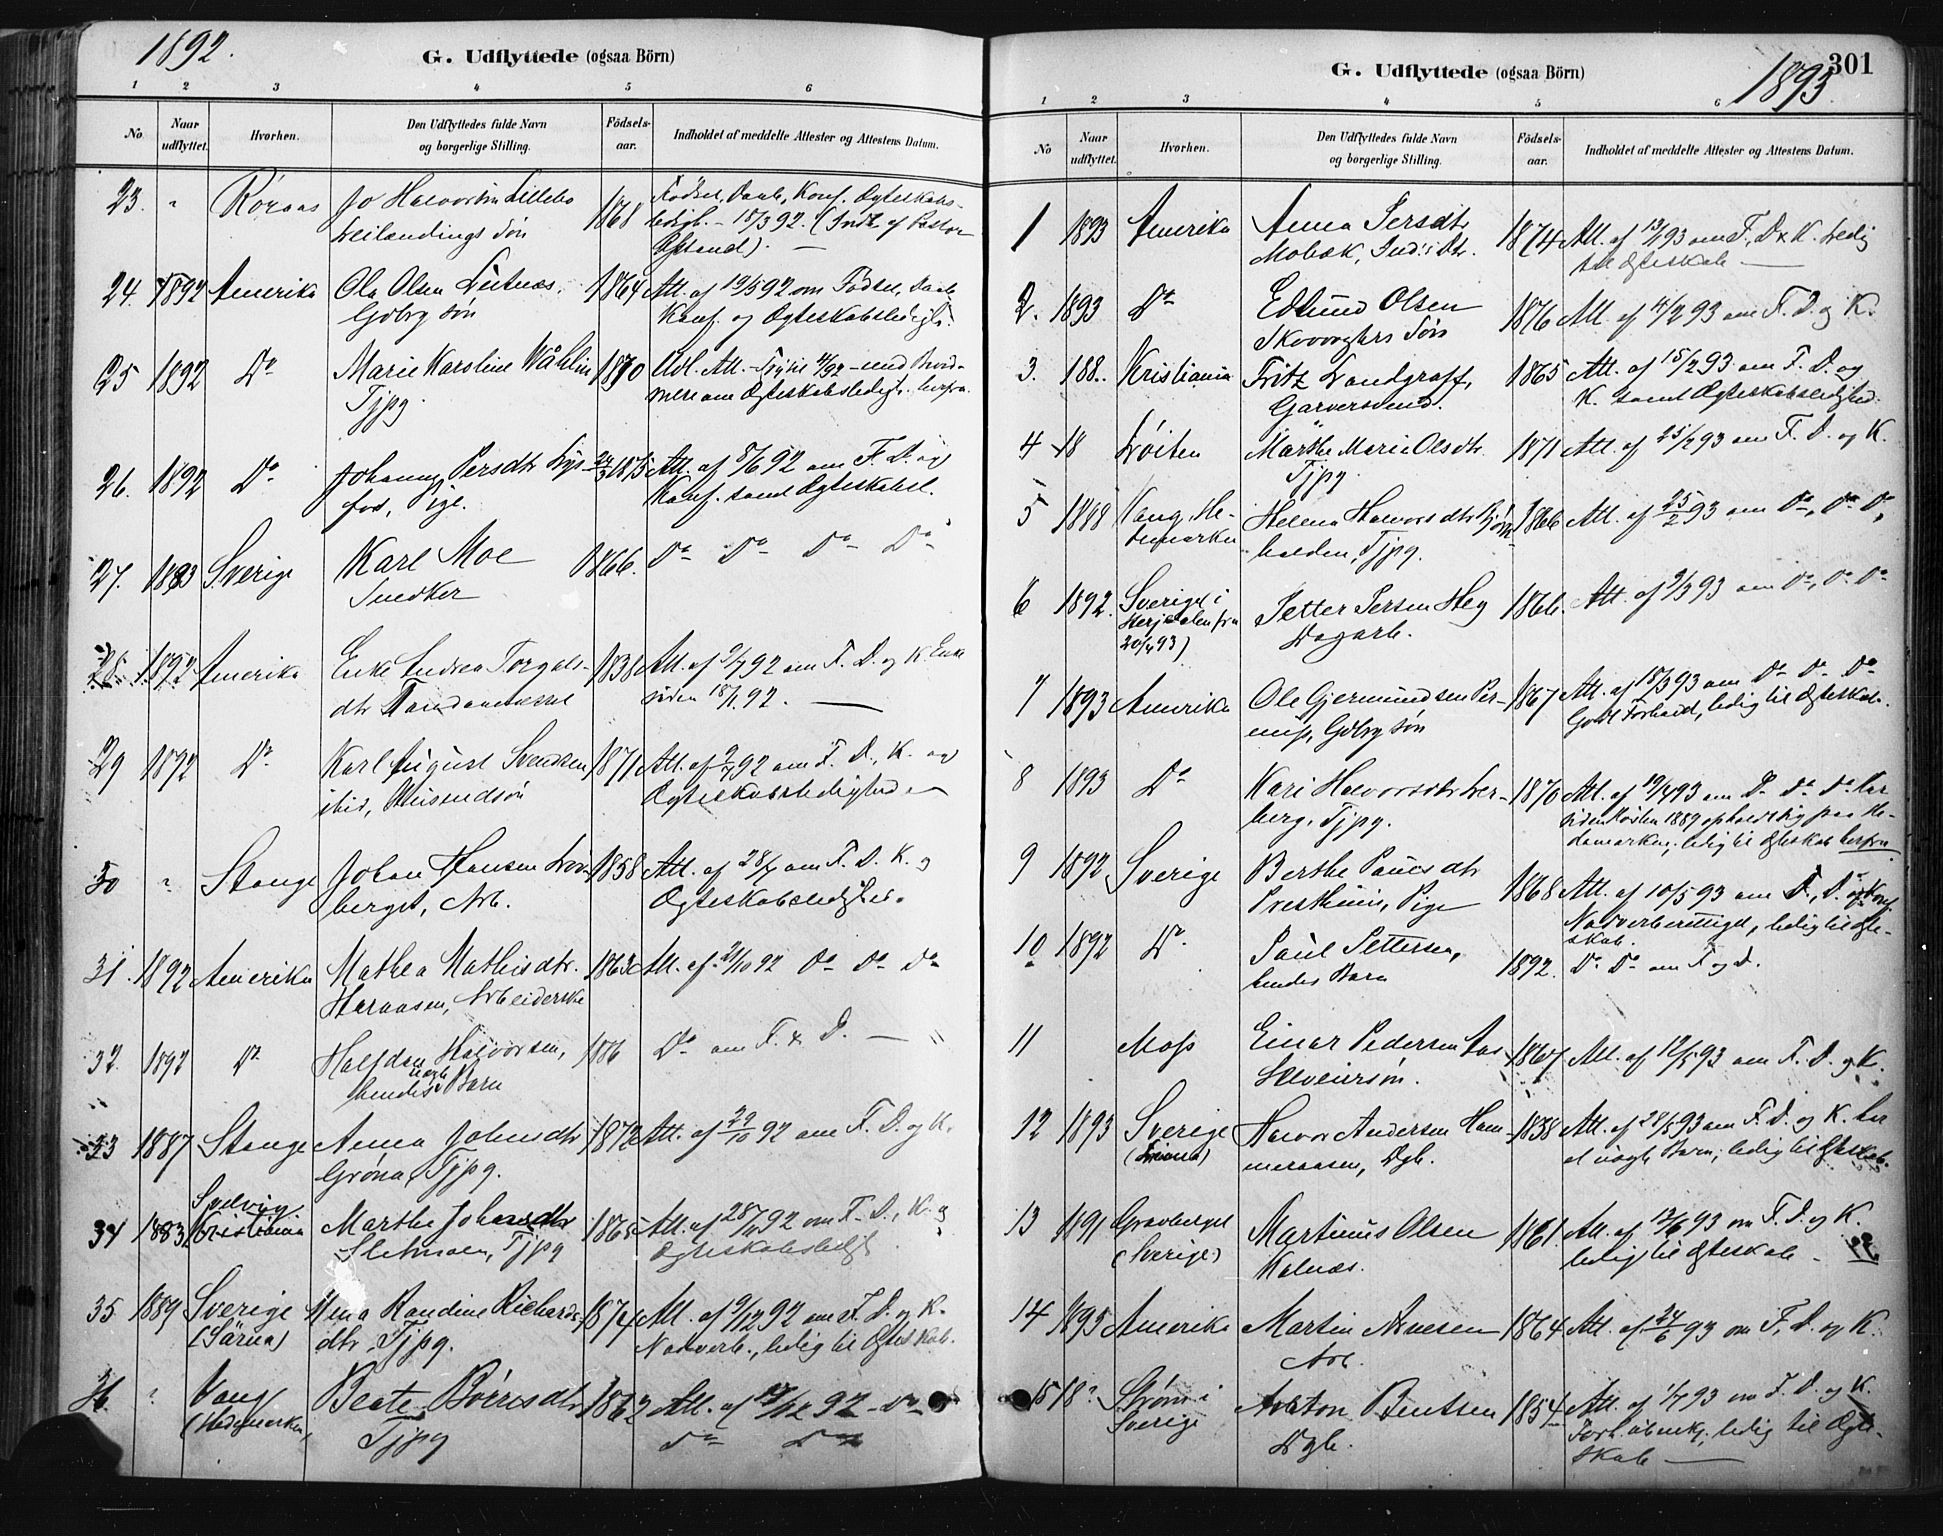 1892.
G. Udflyttede (ogsaa Börn)
1 2 3 4 5 6
No
Naar udflyttet.
Hvorhen.
Den Udflyttedes fulde Navn og borgerlige Stilling.
Födsels-aar.
Indholdet af meddelte Attester og Attestens Datum.
23. " Röraas Jo Halvorsen Lillebo 1868 Födsel, Daab, Konf. Ægteskabs-
Leilændings Sön ledigh. - 18/3 92.
24. 1892 Amerika Ola Olsen 1864 Att. af 19/5 92 om Födsel, Daab
Gdbrg sön Konf. og Ægteskabsledigh.
25 1892 Do Marie Karoline Wåhlin 1870 Udl. Att.
Tjpg. om Ægteskabsledigh. herfra.
26. 1892 Do Johanne Persdtr Lys- 24/3 1875 Att. af 8/6 92 om F. D. og
fos, Pige. Konf. samt Ægteskabsl.
27. 1883 Sverige Karl Moe 1866. Do Do Do Do
Snedker
28. 1892 Amerika Enke Andrea Torgals- 1838 Att. af 9/7 92 om F. D. og K. Enke
dtr siden 18/1 92. —
29 1892 Do Karl August Svendsen 1871 Att. af 9/7 92 om F. D., K. og
ibid, Husmdsön Ægteskabsledighed
30 " Stange Johan Hansen Lov- 1858 Att. af 28/7 om F. D. K. og
berget, Arb. Ægteskabsledighed.
31. 1892 Amerika Mathea Mathisdtr. 1863 Att. af 21/10 92 Do Do Do
Haraasen, Arbeiderske
32. 1892 Do Halfdan Halvorsen, 186 Do om F. & D. — "
hendes uægte Barn
33 1887 Stange Anna Johnsdtr 1872 Att. af 29/10 92 om F. D. og K.
Gröna, Tjpg.
34 1883 Kristiania Marthe Johansdtr 1865 Att. af 28/11 92 om F. D., K. og
Sletmoen, Tjpg Ægteskabsledigh
35 1889 Sverige Randine Richards- 1874 Att. af 9/12 92 om F. D. og K.
(Särna) dtr, Tjpg. Nadverb., ledig til Ægteskab.
36. " Vang Beate Börresdtr 1862 Att. af 92 - Do
(Hedemarken) Tjpg Do Do
G. Udflyttede (ogsaa Börn)
301
1893
1 2 3 4 5 6
No
Naar udflyttet.
Hvorhen.
Den Udflyttedes fulde Navn og borgerlige Stilling.
Födsels-aar.
Indholdet af meddelte Attester og Attestens Datum.
1 1893 Amerika Anna Persdtr 1874 Att. af 13/1 93 om F. D & K. Ledig
Mobæk, Ind's Dtr. til Ægteskab —
2. 1893 Do Edlund Olsen 1876 Att. af 4/2 93 om F. D. og K.
Skovvogters Sön
3. 188.. Kristiania Fritz Landgraff, 1865 Att. af 15/2 93 om F. D. og
Garversvend. K. samt Ægteskabsledighed.
4 18 Löiten Marthe Marie Olsdtr 1871 Att. af 25/2 93 om F. D. og K.
Tjpg.
5 1888 Vang, He- Helena Halvorsdtr 1866 Att. af 25/2 93 om Do, Do Do,
demarken holden, Tjpg.
6 1892. Sverige i Petter Persen Heg 1866. Att. af 9/3 93 om Do, Do Do
Herjedalen fra Dagarb.
20/4 93)
7 1893 Amerika Ole Gjermundsen Per- 1867 Att. af 18/3 93 om Do Do Do
Gdbrg sön Godt Forhold, ledig til Ægteskab.
8 1893 Do Kari Halvorsdtr Ler- 1870 Att. af 19/4 93 om Do Do Do har
berg, Tjpg. siden Hösten 1889 opholdt sig paa He-
demarken; ledig til Ægteskab herfra
9 1892 Sverige Berthe Paulsdtr 1868 Att. af 10/5 93 om F., D. og Konf.
Pige Nadverberettiget, ledig til Ægte-
skab.
10 1892 Do. Paul Pettersen, 1892. Do Do om F og D.
hendes Barn
11 Moss Einar Pedersen Aas 1867 Att. af 12/5 93 om F. D. og K.
Selveiersön.
12 1893 Sverige Halvor Andersen Ham- 1838 Att. af 28/5 93 om F. D. og K. har
meraasen, Dgb. et uægte Barn; ledig til Ægteskab.
13 1891 Gravberget Martinus Olsen 1861. Att. af 12/6 93 om F. D. og K.
(Sverige) Kalnæs. ledig til Ægteskab -
14 1893 Amerika Martin Arnesen 1864 Att. af 24/6 93 om F. D. og K.
Arb.
15 18 " Ström i Anton Bentsen 1854 Att. af 1/7 93 om F. D. og K.
Sverige Dgb. Forh. ubemkj., ledig til Ægte-
skab —